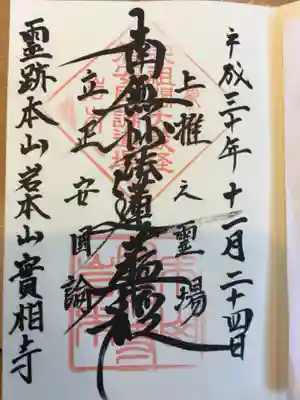 平成三十年十一月二十四日
上推之霊場
南無妙法蓮華経
立正安国論
霊跡本山岩本山實相寺